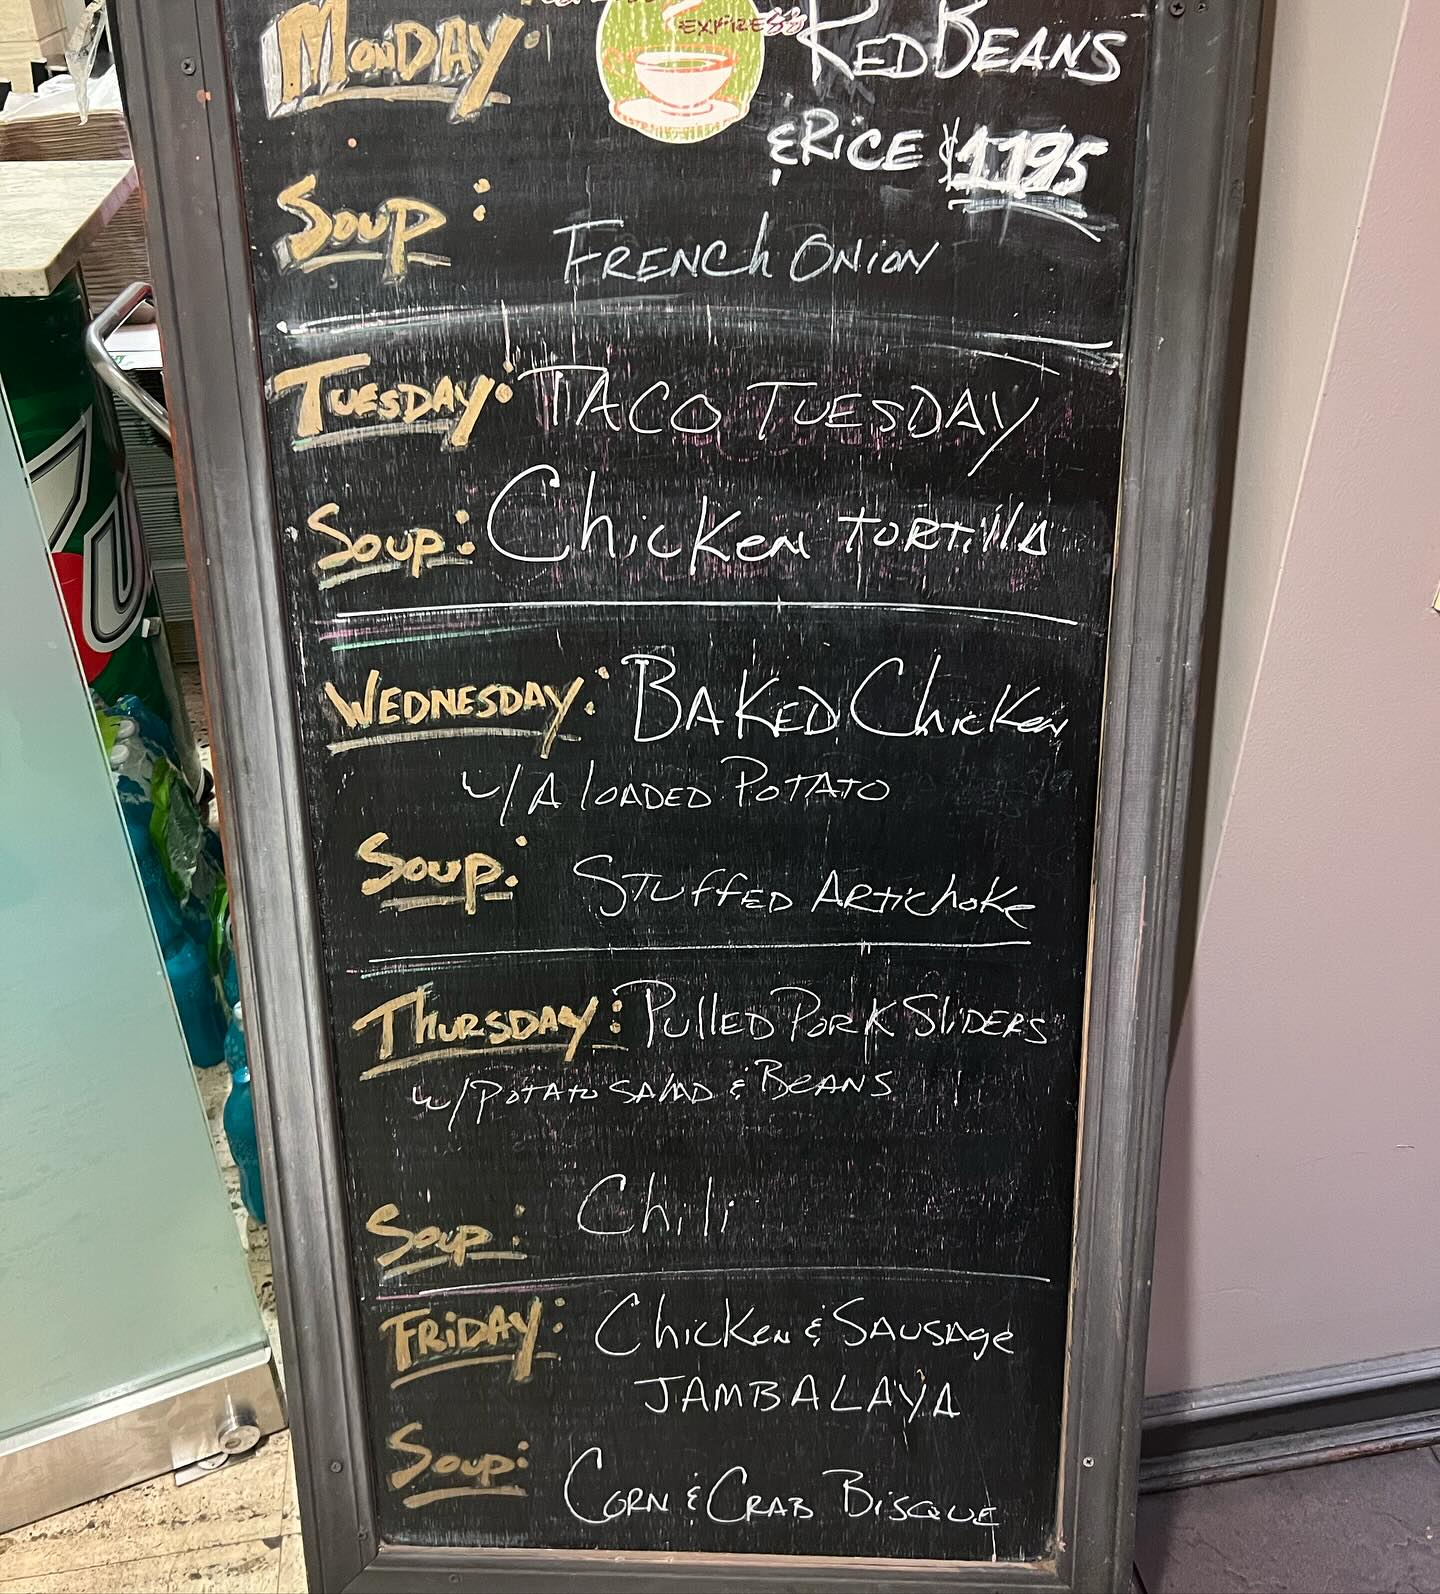 MONDAY: RED BEANS
& RICE $11.95
SOUP: FRENCH ONION
EXPRESS
TUESDAY: TACO TUESDAY
SOUP: Chicken TORTillA
WEDNESDAY: BAKED Chicken
w/ A lOADED POTATO
SOUP: STUffED ARTichoKe
THURSDAY: PUllED PORK SliDERS
w/ POTATO SALAD & BEANS
SOUP: Chili
FRIDAY: Chicken & SAUSAge
JAMBALAYA
SOUP: CORN & CRAB BISQUE